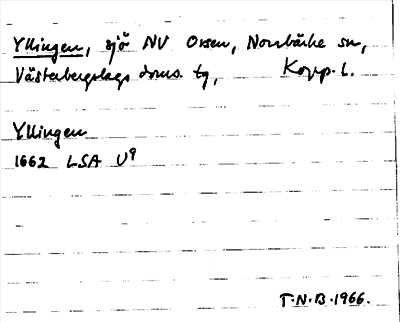 Yllingen, sjö NV Orsen, Norrbärke sn,
Västerbergslags doms. tg, Kopp. l.
Yllingen
1662 LSA U9
T.N.B.1966.